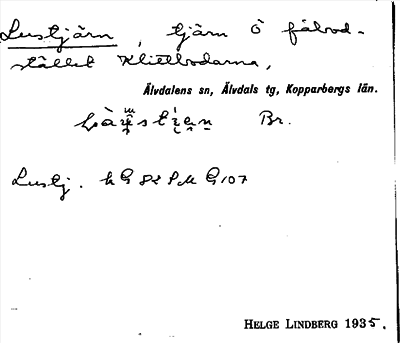 Lustjärn, tjärn Ö fäbod-
stället Klittbodarna,
Älvdalens sn, Älvdals tg, Kopparbergs län.
Br.
Lustj. h G 82 PM G 107
HELGE LINDBERG 1935.